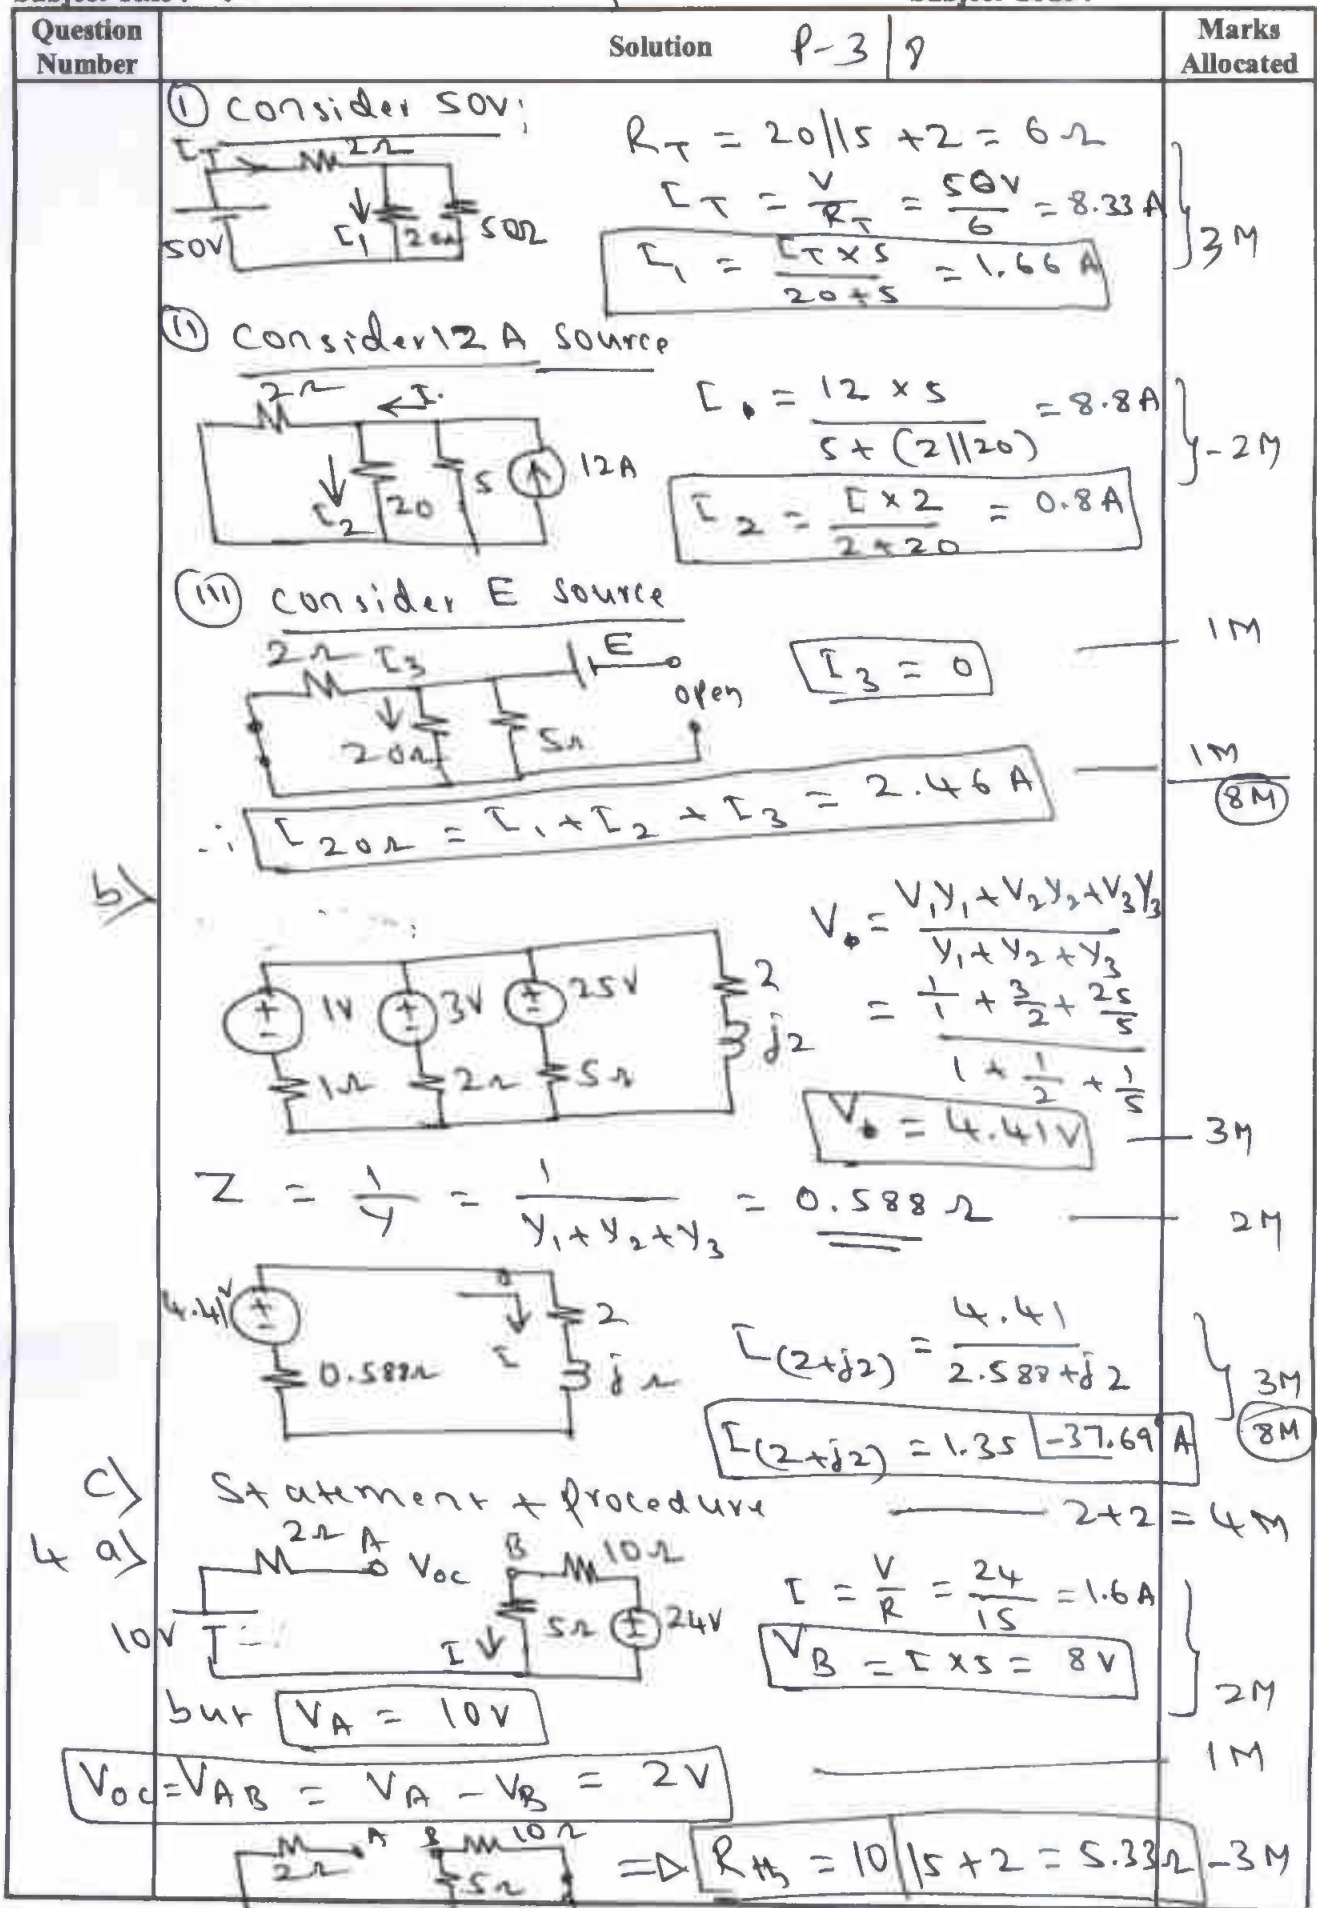 Question Number
Solution P-3/8
Marks Allocated
(i) Consider 50V;
I_T 2Ω
50V I_1 20Ω 50Ω
R_T = 20||5 + 2 = 6Ω
I_T = V/R_T = 50V/6 = 8.33 A
I_1 = I_T × 5 / 20+5 = 1.66 A
3M
(ii) Consider 12 A source
2Ω I
I_2 20 5 12A
I = 12 × 5 / 5 + (2||20) = 8.8A
-2M
I_2 = I × 2 / 2+20 = 0.8A
(iii) Consider E source
2Ω I_3 E
20Ω 5Ω open
I_3 = 0
1M
∴ I_20Ω = I_1 + I_2 + I_3 = 2.46 A
1M
8M
b)
1V 3V 25V 2
1Ω 2Ω 5Ω j2
V = V_1Y_1 + V_2Y_2 + V_3Y_3 / Y_1 + Y_2 + Y_3
= 1/1 + 3/2 + 25/5 / 1 + 1/2 + 1/5
V = 4.41V
3M
Z = 1/Y = 1 / Y_1 + Y_2 + Y_3 = 0.588 Ω
2M
4.41V I 2
0.588Ω jΩ
I_(2+j2) = 4.41 / 2.588+j2
3M
I_(2+j2) = 1.35 ∠-37.69 A
8M
c) Statement + procedure
2+2 = 4M
4 a)
2Ω A V_OC B 10Ω
10V I 5Ω 24V
I = V/R = 24/15 = 1.6A
V_B = I × 5 = 8V
2M
but V_A = 10V
V_OC = V_AB = V_A - V_B = 2V
1M
2Ω A B 10Ω
5Ω
⇒ R_th = 10||5 + 2 = 5.33Ω
-3M